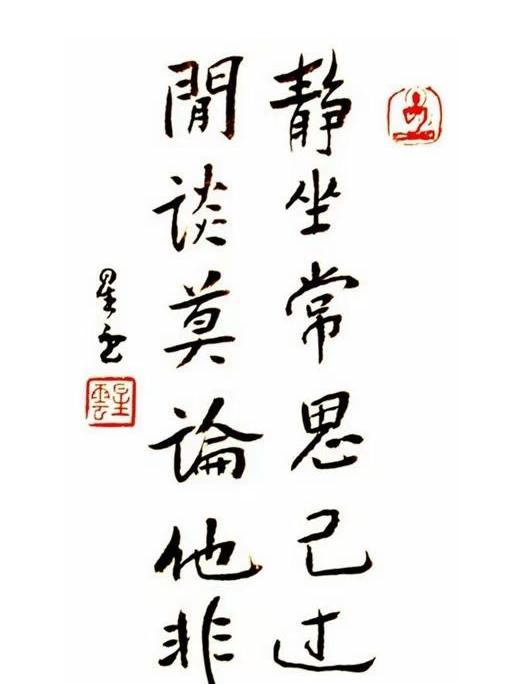 靜坐常思己过
閒談莫論他非
星云
星雲